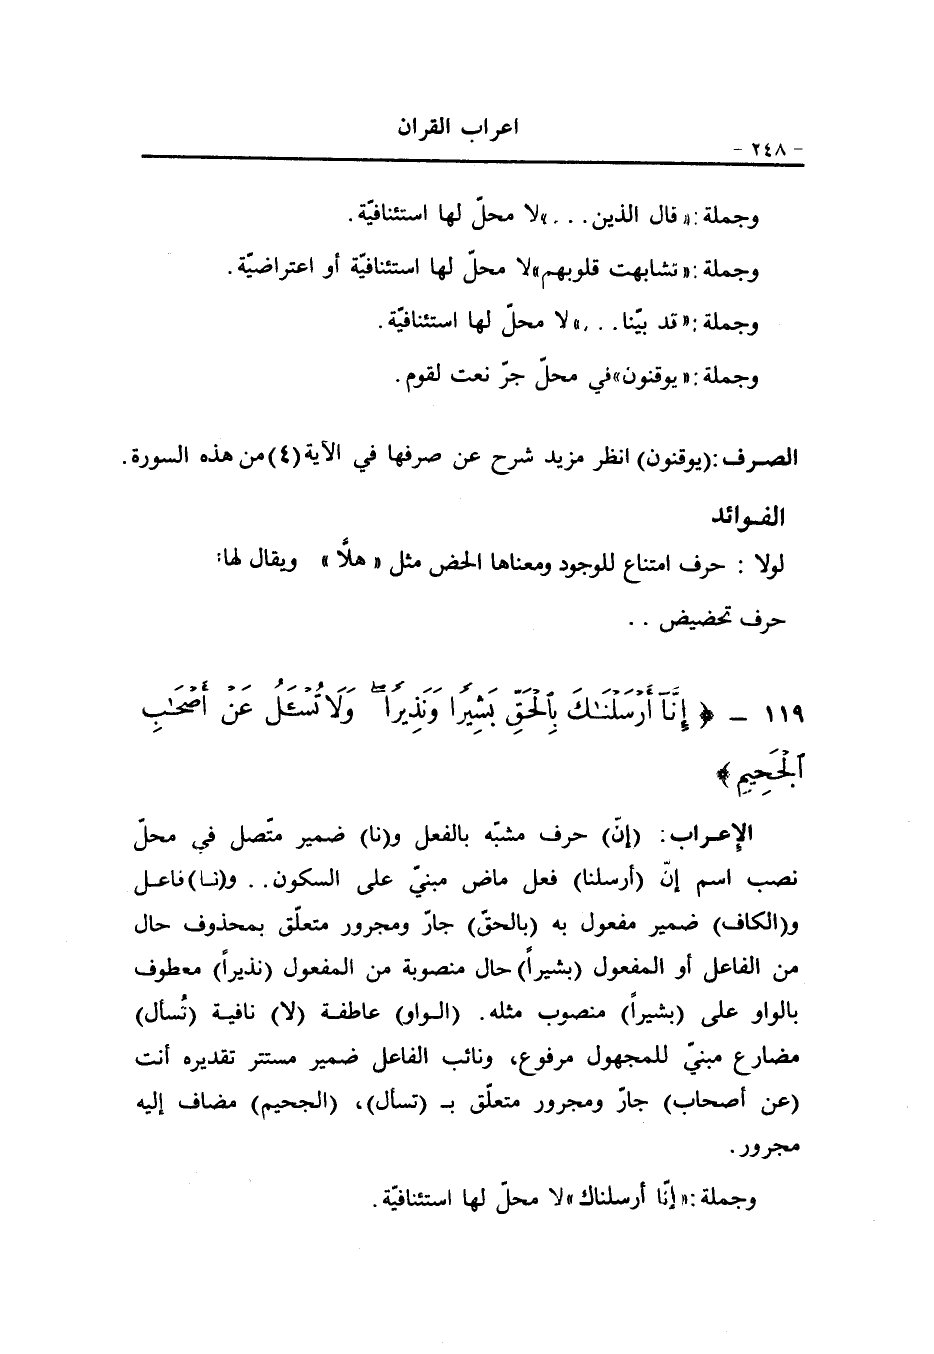 اعراب القران
- ٢٤٨ -
وجملة :« قال الذين . . .»لا محلّ لها استئنافيّة .
وجملة :« تشابهت قلوبهم»لا محلّ لها استئنافيّة أو اعتراضيّة .
وجملة :« قد بيّنا . . .»لا محلّ لها استئنافيّة .
وجملة :« يوقنون»في محلّ جرّ نعت لقوم .
الصـرف :(يوقنون) انظر مزيد شرح عن صرفها في الآية (٤)من هذه السورة .
الفـوائد
لولا : حرف امتناع للوجود ومعناها الحض مثل « هلَّا » ويقال لها:
حرف تحضيض . .
١١٩ - ﴿ إِنَّآ أَرۡسَلۡنَٰكَ بِٱلۡحَقِّ بَشِيرٗا وَنَذِيرٗاۖ وَلَا تُسۡـَٔلُ عَنۡ أَصۡحَٰبِ
ٱلۡجَحِيمِ ﴾
الإعـراب: (إنّ) حرف مشبّه بالفعل و(نا) ضمير متّصل في محلّ
نصب اسم إنّ (أرسلنا) فعل ماض مبنيّ على السكون . . و(نـا) فاعـل
و(الكاف) ضمير مفعول به (بالحقّ) جارّ ومجرور متعلّق بمحذوف حال
من الفاعل أو المفعول (بشيراً) حال منصوبة من المفعول (نذيراً) معطوف
بالواو على (بشيراً) منصوب مثله. (الـواو) عاطفـة (لا) نافيـة (تُسأل)
مضارع مبنيّ للمجهول مرفوع، ونائب الفاعل ضمير مستتر تقديره أنت
(عن أصحاب) جارّ ومجرور متعلّق بـ (تسأل)، (الجحيم) مضاف إليه
مجرور .
وجملة :« إنّا أرسلناك»لا محلّ لها استئنافيّة .